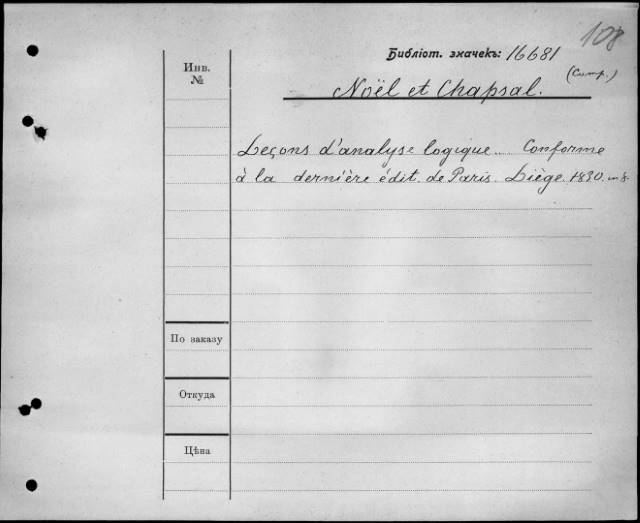 108
Библіот. значекъ: 16681
Инв. №
Noël et Chapsal.
Leçons d'analyse logique... Conforme
à la dernière édit. de Paris. Liège. 1830. in 8.
По заказу
Откуда
Цѣна